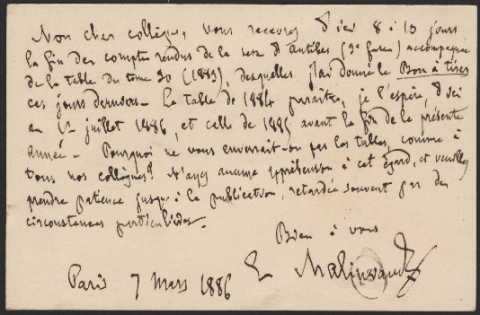 Mon cher collègue, vous recevrez d'ici 8 à 10 jours
la fin des comptes rendus de la sess. d'Antibes (3e fasc.) accompagnée
de la table du tome 30 (1883), desquelles j'ai donné le Bon à tirer
ces jours derniers. La table de 1884 paraîtra, je l'espère, d'ici
au 1er juillet 1886, et celle de 1885 avant la fin de la présente
année. Pourquoi ne vous enverrait-on pas les tables, comme à
tous nos collègues? N'ayez aucune appréhension à cet égard, et veuillez
prendre patience jusqu'à la publication, retardée souvent par des
circonstances particulières.
Bien à vous
E. Malinvaud
Paris 7 Mars 1886